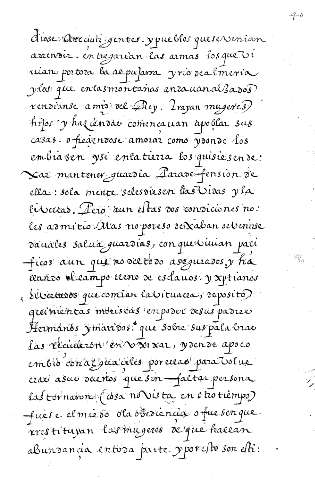 dose. Acudian gentes. y pueblos que se venian
a rendir. entregavan las armas los que vi
vian por toda la alpujarra y rio de almeria
y los que en las montañas andavan alçados
rendianse a md del Rey. trayan mugeres
hijos y haziendas comencavan a poblar sus
casas. ofreçiendose a morar como y donde los
embiasen y si en la tierra los quisiesen de:
xar mantener guardia Para defension de
ella: sola mente seles diesen las vidas y la
livertad. Pero aun estas dos condiciones no:
les admitio. Mas no por eso dexaban de venirse
davales salva guardias, con que vivian paci
ficos aun que no del todo asegurados. y ha
llando el campo lleno de esclavos. y xptianos
que comian la vitualla, deposito
quinientas moriscas en poder de sus padres
Hermanos y maridos. que sobre sus palabras
las recibieron en Uxixar, y dende a poco
embio con alguaciles por ellas para volve
rlas a sus dueños que sin faltar persona
las tornaron (cosa no vista en otro tiempo)
fuese el miedo o la obediencia o fuesen que
restituyan las mugeres de que hallan
abundancia en toda parte. y por esto son esti: